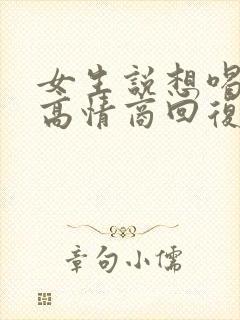 女生說想喝
高情商回復
章句小儒